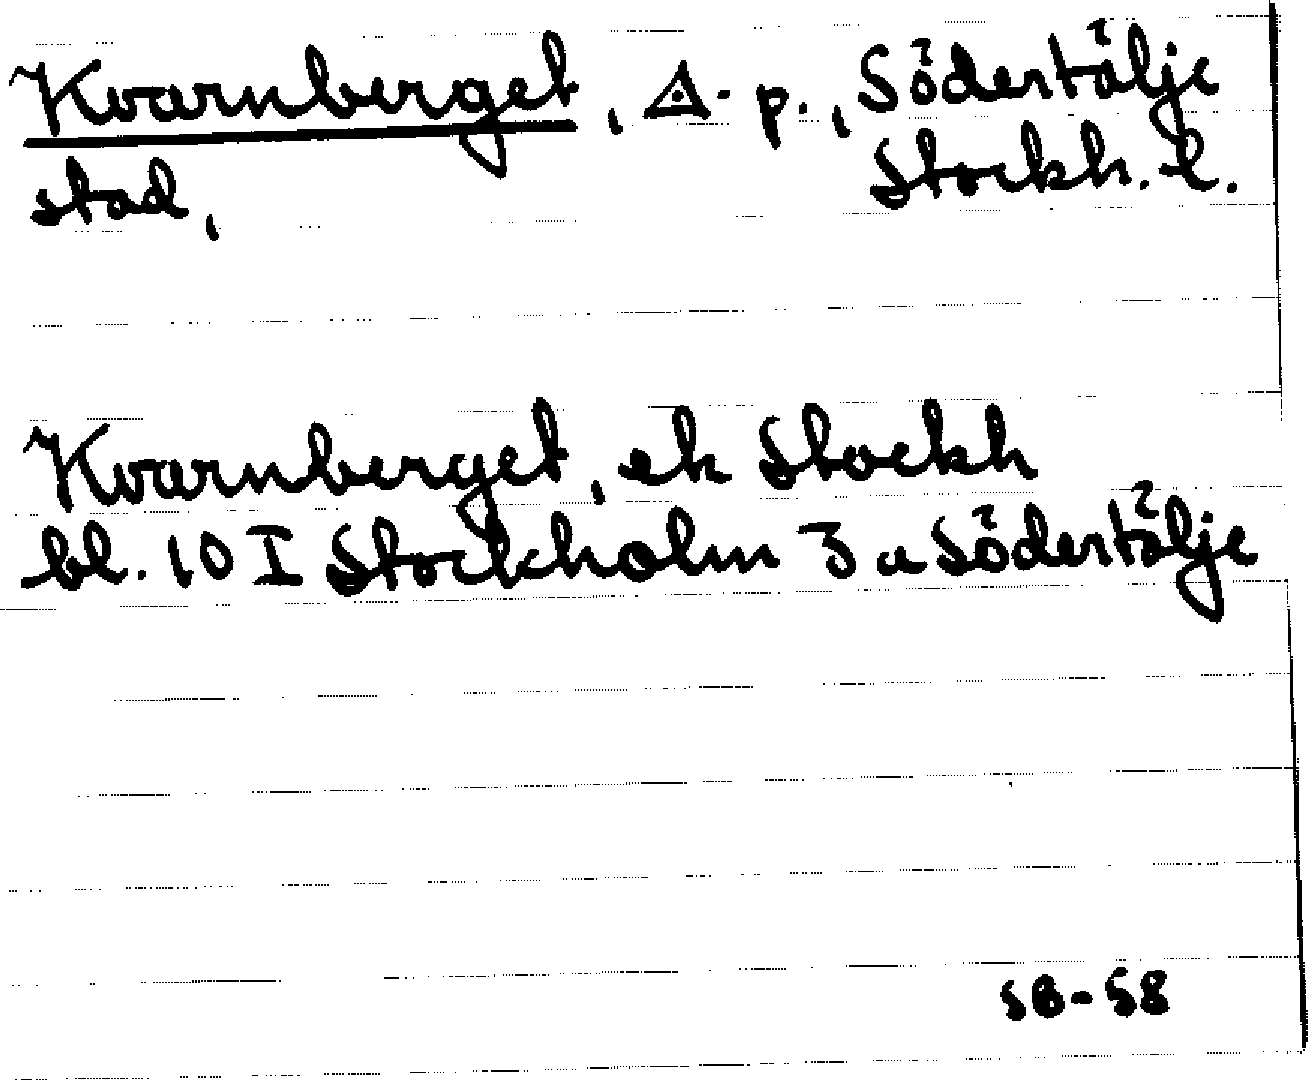 Kvarnberget, ◬-p., Södertälje
stad, Stockh. l.
Kvarnberget, ek Stockh
bl. 10 I Stockholm 3 a Södertälje
SB-58